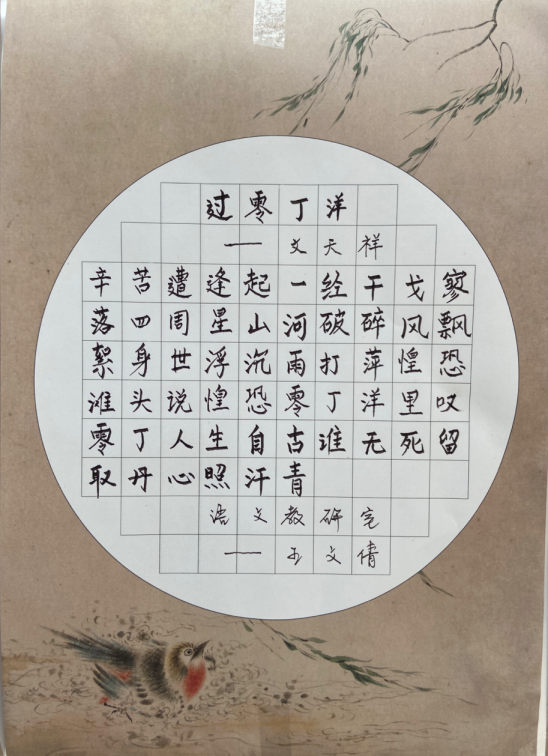 过零丁洋
——文天祥
辛苦遭逢起一经干戈寥
落四周星山河破碎风飘
絮身世浮沉雨打萍惶恐
滩头说惶恐零丁洋里叹
零丁人生自古谁无死留
取丹心照汗青
语文教研室
——于文倩